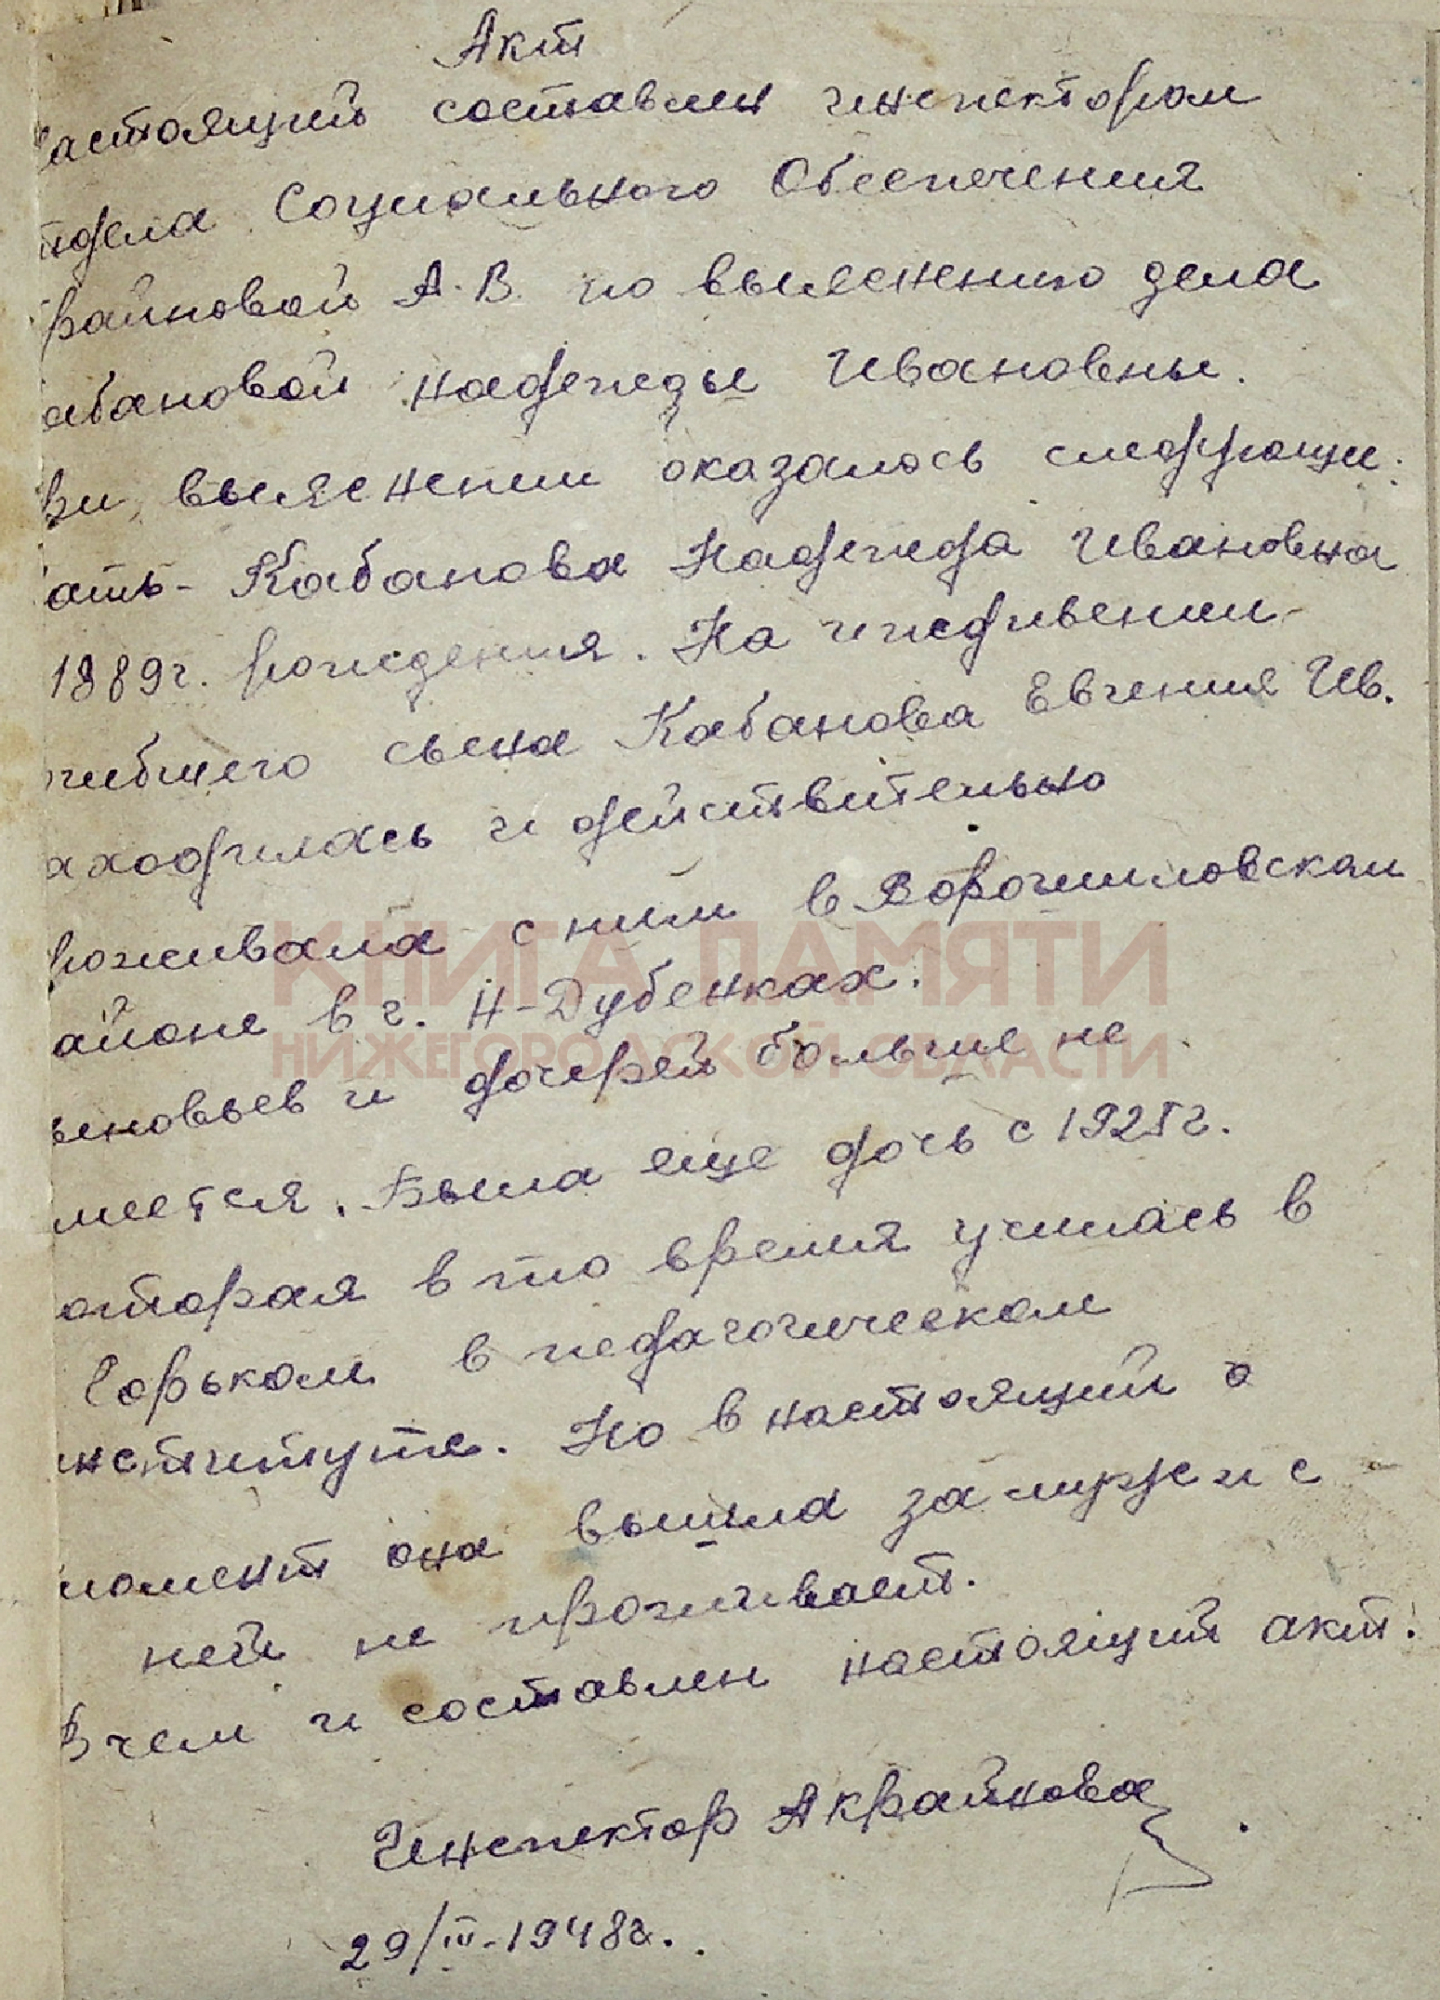 Акт
настоящий составлен инспектором
отдела Социального Обеспечения
райновой А.В. по выяснению дела
абановой надежды Ивановны.
ри выяснении оказалось следующе:
ать - Кабанова Надежда Ивановна
1889г. рождения. На иждивении
гибшего сына Кабанова Евгения Ив.
аходилась и действительно
роживала с ним в Ворошиловском
КНИГА ПАМЯТИ
айоне в г. Н-Дубенках.
НИЖЕГОРОДСКОЙ ОБЛАСТИ
ыновьев и дочерей больше не
меется. Была еще дочь с 1925г.
оторая в то время училась в
Горьком в педагогическом
институте. Но в настоящий
момент она вышла замуж и с
ней не проживает.
В чем и составлен настоящий акт.
Инспектор Акрайнова
29/III-1948г.